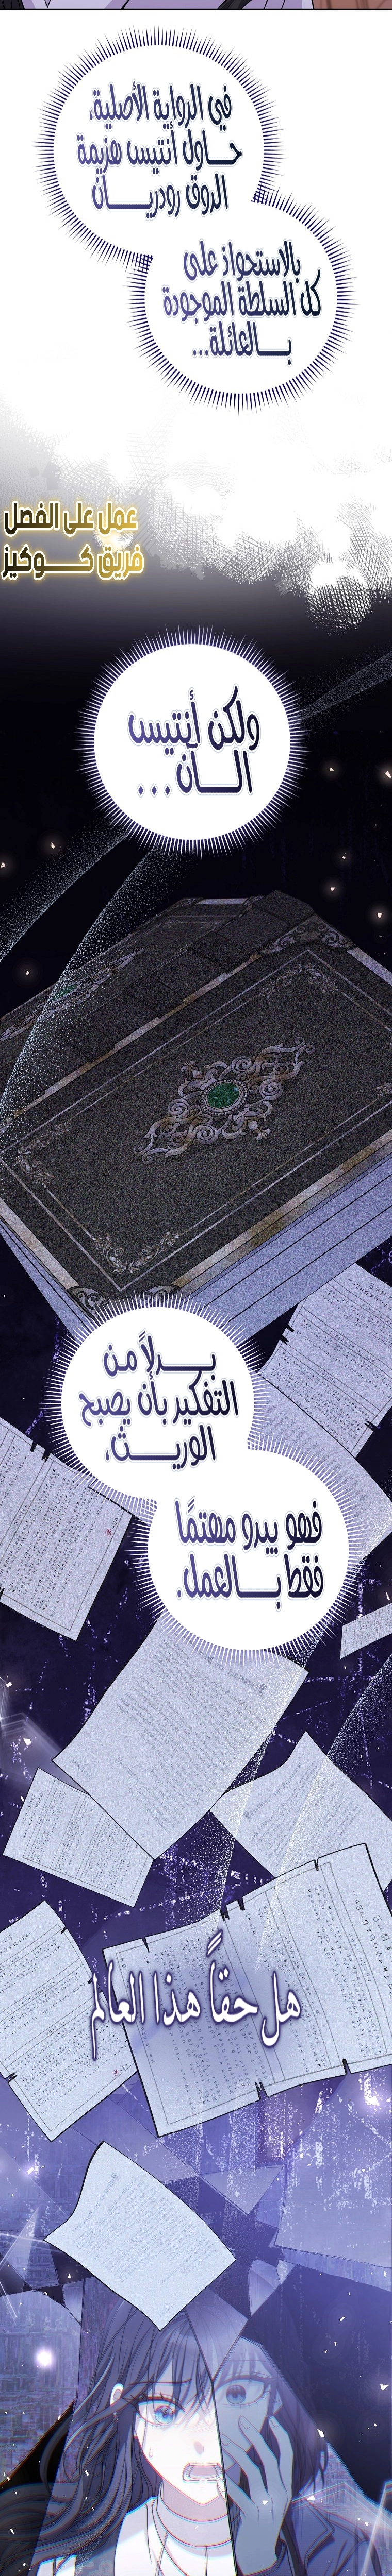 في الرواية الأصلية،
حاول أنتيس هزيمة
الدوق رودريان
بالاستحواذ على
كل السلطة الموجودة
بالعائلة...
عمل على الفصل
فريق كوكيز
ولكن أنتيس
الآن...
بدلاً من
التفكير بأن يصبح
الوريث،
فهو يبدو مهتمًا
فقط بالعمل.
هل حقاً هذا العالم